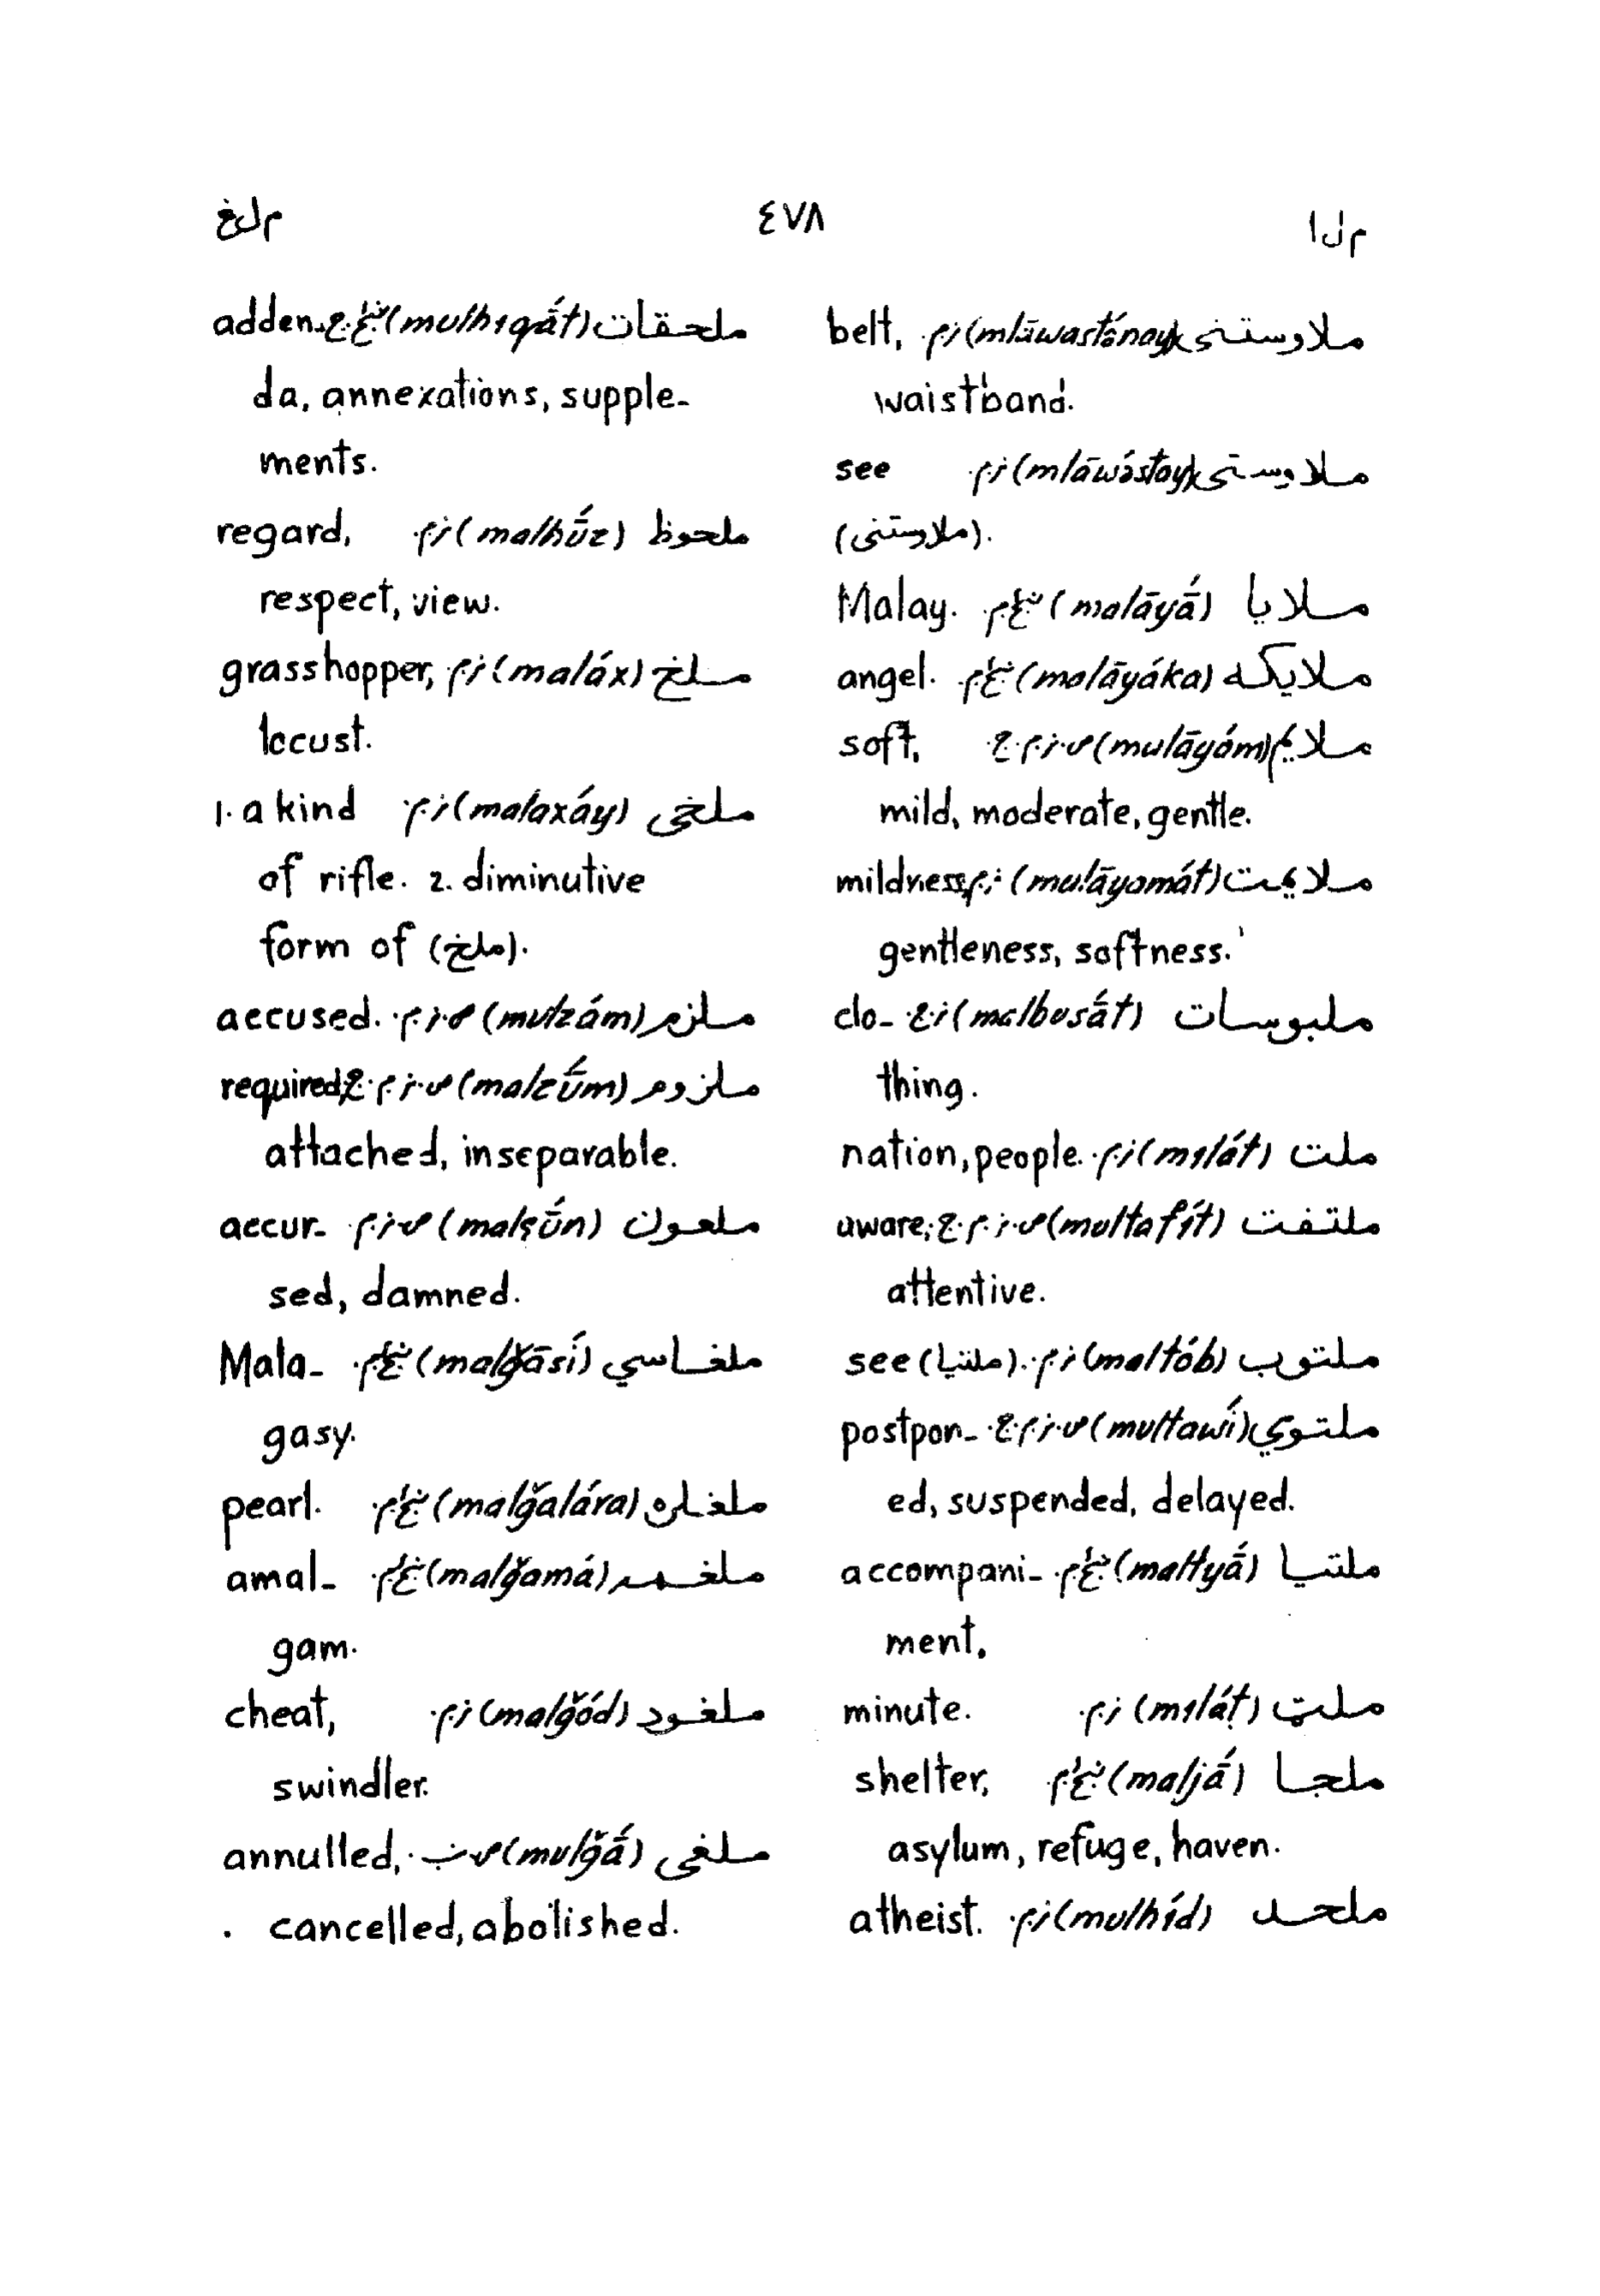 م ل ا ٤٧٨ م ل غ
ملاوستنی (mlāwastə́nay) نر.م. belt,
waistband.
ملاوستی (mlāwə́stay) نر.م. see
(ملاوستنی).
ملایا (malāyā́) ښځ.م. Malay.
ملایکه (malāyáka) ښځ.م. angel.
ملایم (mulāyám) ص.نر.م.ج soft,
mild, moderate, gentle.
ملایمت (mulāyamát) نر.م. mildness,
gentleness, softness.
ملبوسات (malbusā́t) نر.ج. clo-
thing.
ملت (mɪlát) نر.م. nation, people.
ملتفت (multafít) ص.نر.م.ج. aware,
attentive.
ملتوب (maltób) نر.م. see (ملتیا).
ملتوي (multawí) ص.نر.م.ج. postpon-
ed, suspended, delayed.
ملتیا (maltyā́) ښځ.م. accompani-
ment.
ملټ (mɪláṭ) نر.م. minute.
ملجا (maljā́) ښځ.م. shelter,
asylum, refuge, haven.
ملحد (mulhíd) نر.م. atheist.
ملحقات (mulhɪqā́t) ښځ.ج. adden-
da, annexations, supple-
ments.
ملحوظ (malhū́z) نر.م. regard,
respect, view.
ملخ (maláx) نر.م. grasshopper,
locust.
ملخی (malaxáy) نر.م. 1. a kind
of rifle. 2. diminutive
form of (ملخ).
ملزم (mulzám) ص.نر.م. accused.
ملزوم (malzū́m) ص.نر.م.ج. required,
attached, inseparable.
ملعون (malʕū́n) ص.نر.م. accur-
sed, damned.
ملغاسي (malğāsí) ښځ.م. Mala-
gasy.
ملغلره (malğalára) ښځ.م. pearl.
ملغمه (malğamá) ښځ.م. amal-
gam.
ملغود (malğód) نر.م. cheat,
swindler.
ملغی (mulğā́) ص.ب. annulled,
cancelled, abolished.